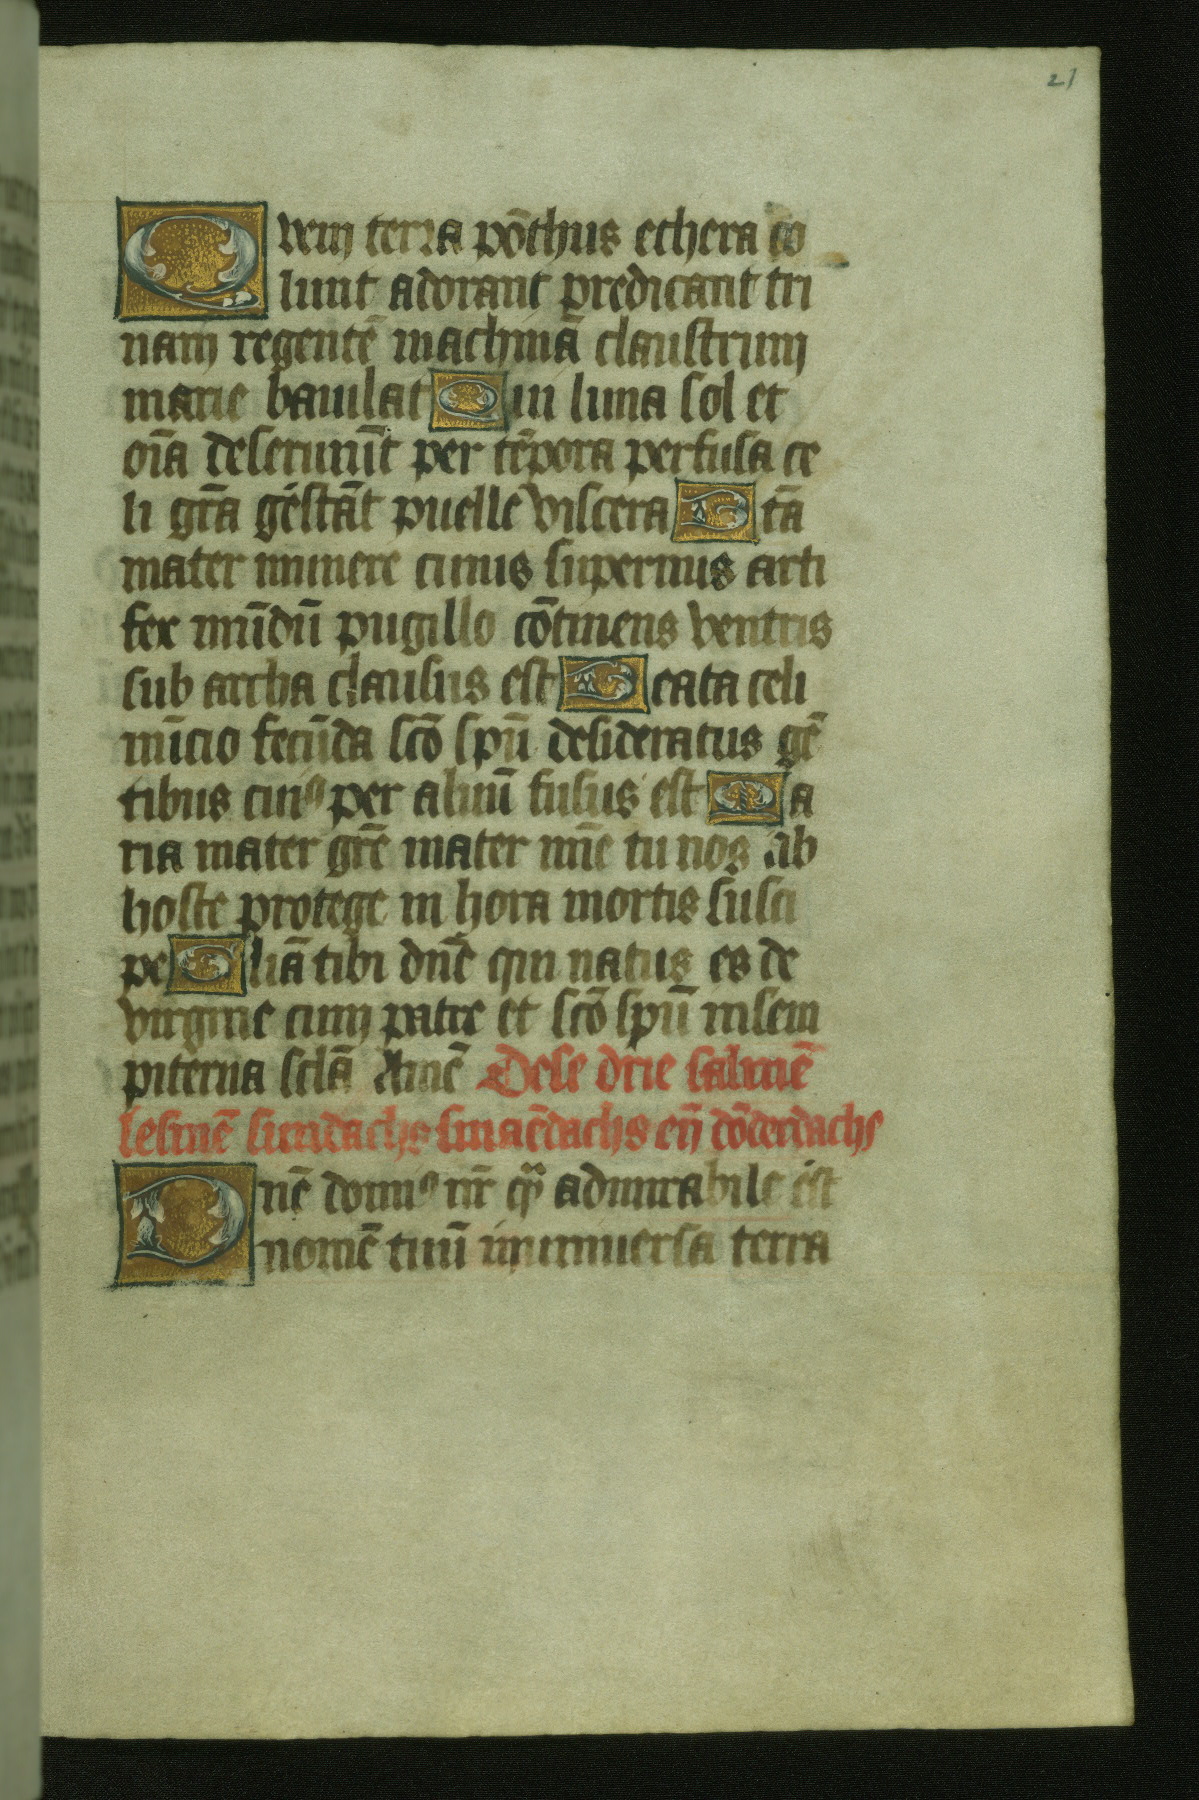 21
Qvem terra pōthus ethera co
lunt adorant predicant tri
nam regentē machinā claustrum
marie baiulat Cui luna sol et
oīa deseruniūt per tēpora perfusa ce
li grā gestāt puelle viscera Btā
mater munere cuius supernus arti
fex mūdū pugillo cōtinens ventris
sub archa clausus est Beata celi
nūcio fecūda scō spū desideratus gē
tibus cuiꝰ per aluū fusus est Ma
ria mater grē mater mīe tu nos ab
hoste protege in hora mortis susci
pe Gliā tibi dnē qui natus es de
virgine cum patre et scō spū in sem
piterna sclā Amē Dese drie salmē
lesmē sundachs maēdachs eñ dōderdachs
Dnē domiꝰ nr̄ q̄ admirabile est
nomē tuū in universa terra